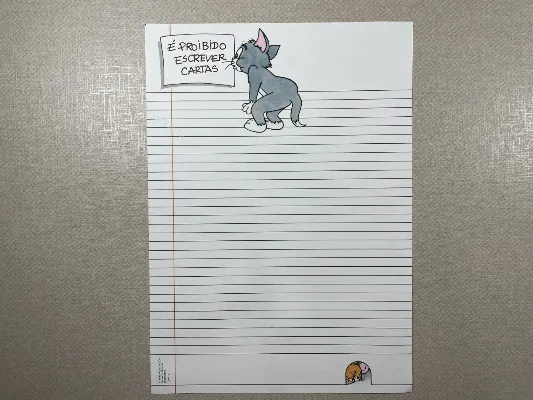 É PROIBIDO
ESCREVER
CARTAS